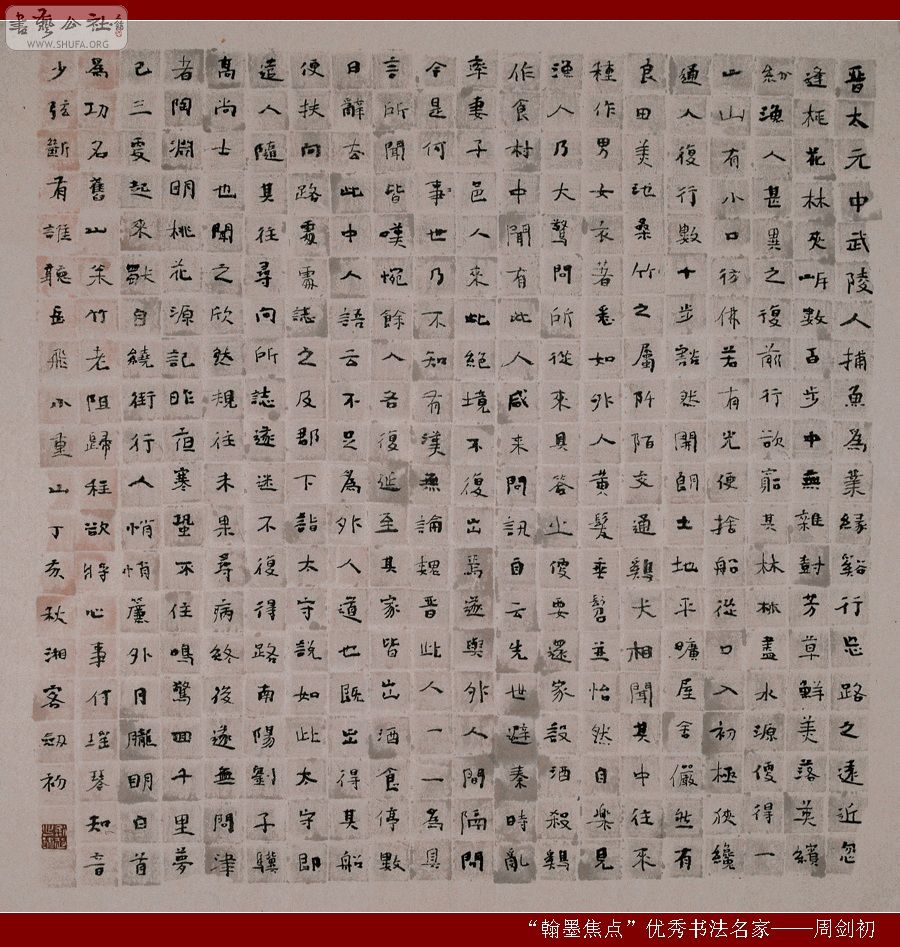 晉太元中武陵人捕魚為業緣谿行忘路之遠近忽
逢桃花林夾岸數百步中無雜樹芳草鮮美落英繽
紛漁人甚異之復前行欲窮其林林盡水源便得一
山山有小口彷彿若有光便捨船從口入初極狹纔
通人復行數十步豁然開朗土地平曠屋舍儼然有
良田美池桑竹之屬阡陌交通雞犬相聞其中往來
種作男女衣著悉如外人黃髮垂髫並怡然自樂見
漁人乃大驚問所從來具答之便要還家設酒殺雞
作食村中聞有此人咸來問訊自云先世避秦時亂
率妻子邑人來此絕境不復出焉遂與外人間隔問
今是何事世乃不知有漢無論魏晉此人一一為具
言所聞皆嘆惋餘人各復延至其家皆出酒食停數
日辭去此中人語云不足為外人道也既出得其船
便扶向路處處誌之及郡下詣太守說如此太守即
遣人隨其往尋向所誌遂迷不復得路南陽劉子驥
高尚士也聞之欣然規往未果尋病終後遂無問津
者陶淵明桃花源記昨夜寒蛩不住鳴驚回千里夢
已三更起來獨自繞街行人悄悄簾外月朧明白首
為功名舊山松竹老阻歸程欲將心事付瑤琴知音
少弦斷有誰聽岳飛小重山丁亥秋湘客劍初
書藝公社
WWW.SHUFA.ORG
“翰墨焦点”优秀书法名家——周剑初